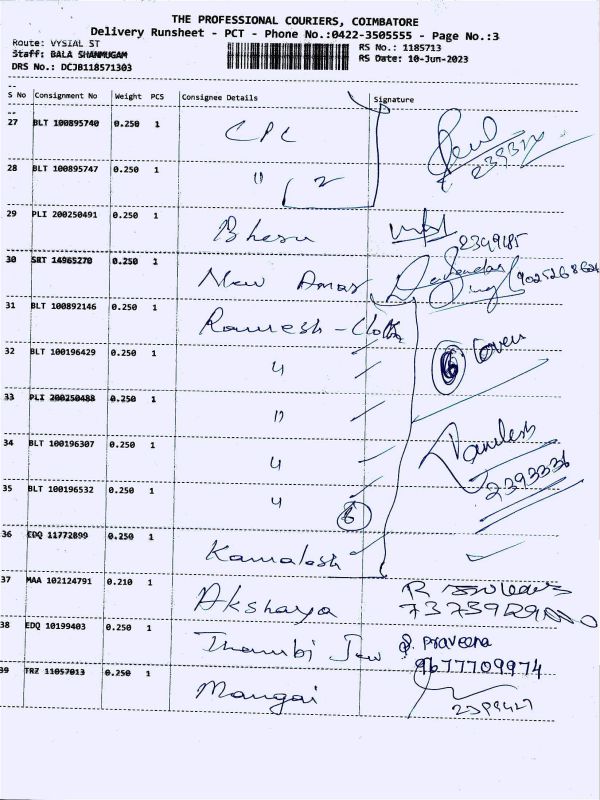 THE PROFESSIONAL COURIERS, COIMBATORE
Delivery Runsheet - PCT - Phone No.:0422-3505555 - Page No.:3
Route: VYSIAL ST
RS No.: 1185713
Staff: BALA SHANMUGAM
RS Date: 10-Jun-2023
DRS No.: DCJB118571303
S No Consignment No Weight PCS Consignee Details Signature
27 BLT 100895740 0.250 1 CPC
28 BLT 100895747 0.250 1 " 2
29 PLI 200250491 0.250 1 Bhesu
2349485
30 SRT 14965270 0.250 1 New Amar
9025268624
31 BLT 100892146 0.250 1 Ramesh - Cloth
32 BLT 100196429 0.250 1 " 6 Cover
33 PLI 200250488 0.250 1 "
34 BLT 100196307 0.250 1 "
2393336
35 BLT 100196532 0.250 1 " 6
36 EDQ 11772899 0.250 1 Kamalesh
37 MAA 102124791 0.210 1 Akshaya
38 EDQ 10199403 0.250 1 Thambi Jew P. Praveena
9677709974
39 TRZ 11057013 0.250 1 Mangai
2399427